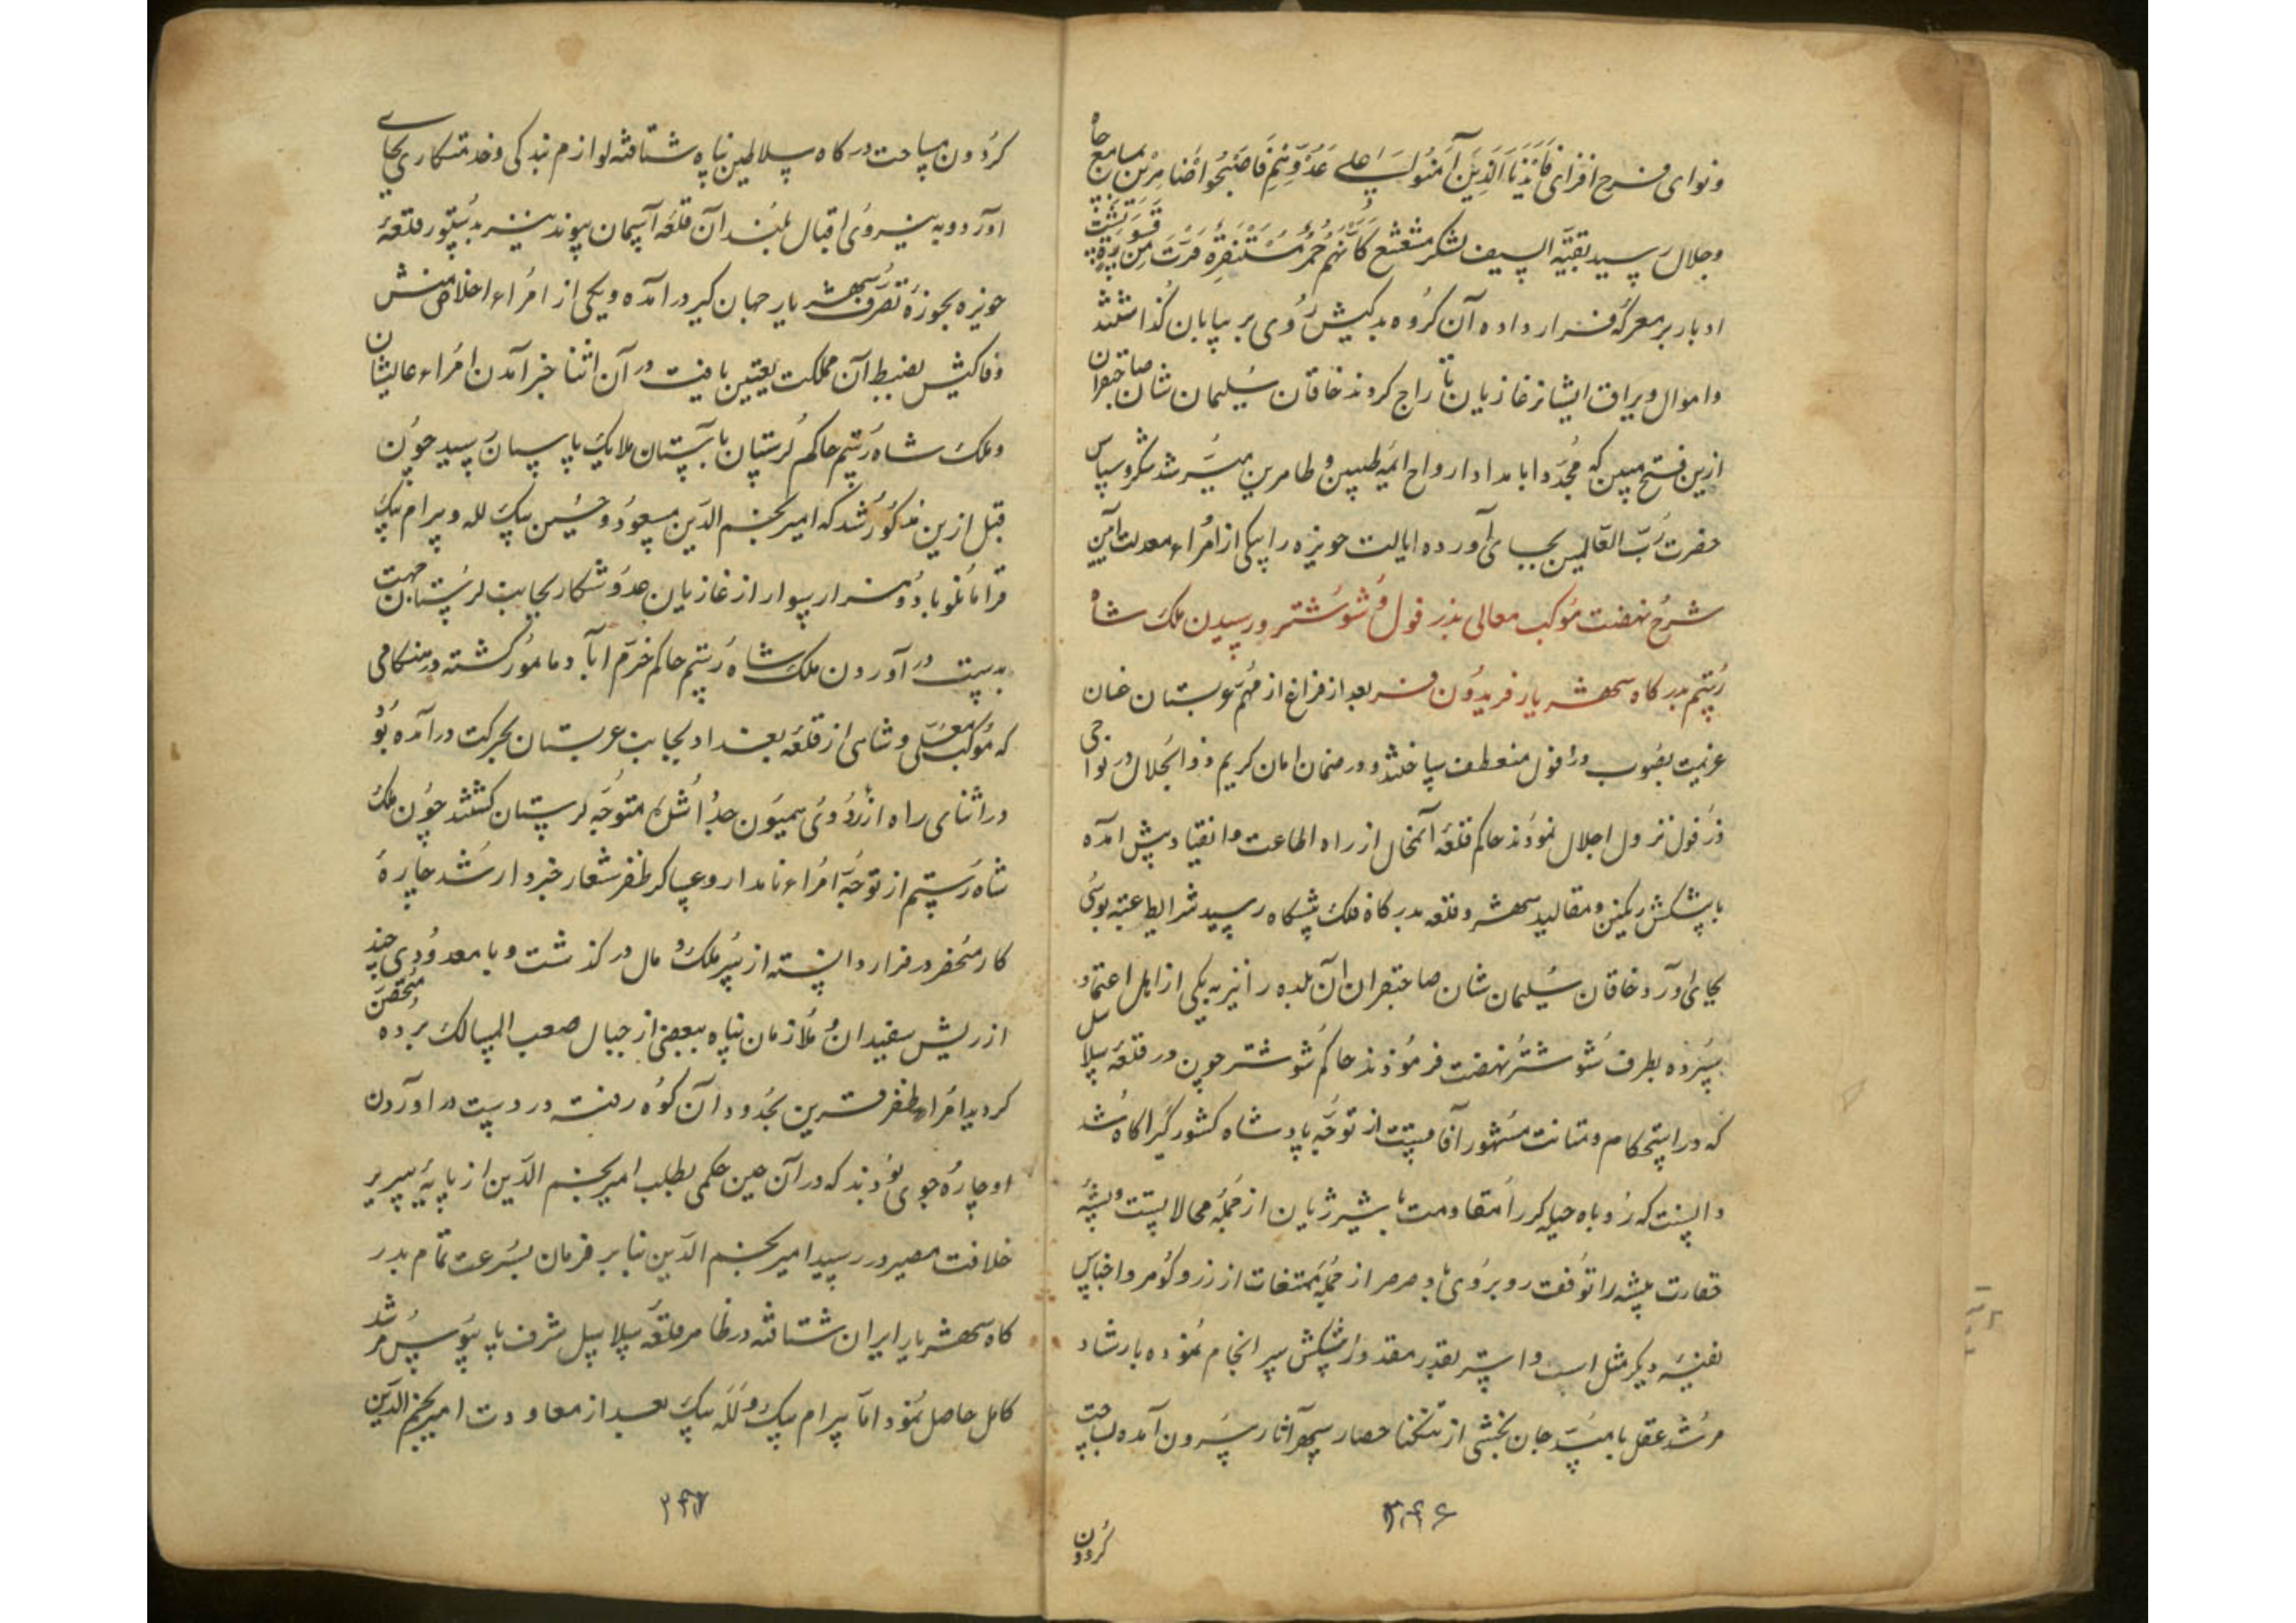 ونوای فرح افزای فَاَیَّدْنَا الَّذِینَ آمَنُوا عَلی عَدُوِّهِمْ فَاَصْبَحُوا ظاهِرِین بمسامع جاه
وجلال رسید بقیّه السیف لشکر مشعشع کَاَنَّهُمْ حُمُرٌ مُسْتَنْفِرَةٌ فَرَّتْ مِن قَسْوَرَةٍ پشت
ادبار بر معرکه قرار داده آن گروه بدکیش روی بر بیابان گذاشتند
واموال ویراق ایشانرا غازیان تاراج کردند خاقان سلیمان شان صاحبقران
ازین فتح مبین که مجدّدا بامداد ارواح ائمه طیبین و طاهرین میسّر شد شکر وسپاس
حضرت ربّ العالمین بجای آورده ایالت حویزه را بیکی از امراء معدلت آیین
شرح نهضت موکب معالی بدزفول و شوشتر ورسیدن ملک شاه
رستم بدرکاه شهریار فریدون فر بعد از فراغ از مهمّ عربستان عنان
عزیمت بصوب دزفول منعطف ساختند و در ضمان امان کریم ذوالجلال در نواحی
دزفول نزول اجلال نمودند حاکم قلعه آنمحال از راه اطاعت وانقیاد پیش آمده
با پیشکش رنکین ومقالید شهر وقلعه بدرکاه فلک پیشکاه رسید شرایط عتبه بوسی
بجای آورد خاقان سلیمان شان صاحبقران آن بلده را نیز به یکی از اهل اعتماد
سپرده بطرف شوشتر نهضت فرمودند حاکم شوشتر چون در قلعه سلاسل
که در استحکام ومتانت مشهور آفاقست از توجّه پادشاه کشورگیر اگاه شد
دانست که روباه حیله کر را مقاومت با شیر ژیان از جمله محالاتست وپشه
حقارت پیشه را توقف روبروی باد صرصر از جمله ممتنعات از زر وکوهر واجناس
نفیسه دیکر مثل اسب واستر بقدر مقدور پیشکش سرانجام نموده بارشاد
مرشد عقل بامید جان بخشی از تنکنا حصار سپهر آثار بیرون آمده بساحت
۳۴۶
کردون
کردون مساحت درکاه سلاطین پناه شتافته لوازم بندکی وخدمتکاری بجای
آورد وبه نیروی اقبال بلند آن قلعه آسمان پیوند نیز بدستور قلعه
حویزه بحوزه تصرّف شهریار جهان کیر درآمده ویکی از امراء اخلاص منش
وفاکیش بضبط آن مملکت تعیین یافت در آن اثنا خبر آمدن امراء عالیشان
وملک شاه رستم حاکم لرستان بآستان ملایک پاسبان رسید چون
قبل ازین مذکور شد که امیر نجم الدین مسعود وحسین بیک لله وبیرام بیک
قرامانلو با ده هزار سوار از غازیان عدو شکار بجانب لرستان جهت
بدست در آوردن ملک شاه رستم حاکم خرّم آباد مامور کشته در هنکامی
که موکب معلّی وشاهی از قلعه بغداد بجانب عربستان بحرکت درآمده بود
در اثنای راه از اردوی همیون جدا شده متوجّه لرستان کشتند چون ملک
شاه رستم از توجّه امراء نامدار وعساکر ظفر شعار خبردار شد چاره
کار منحصر در فرار دانسته از سر ملک و مال درکذشت و با معدودی چند
از ریش سفیدان و ملازمان پناه ببعضی از جبال صعب المسالک برده متحصّن
کردید امراء ظفر قرین بحدود آن کوه رفته در دست در اوردن
او چاره جوی بودند که در آن حین حکمی بطلب امیر نجم الدین از پایه سریر
خلافت مصیر در رسید امیر نجم الدین بنا بر فرمان بسرعت تمام بدر
کاه شهریار ایران شتافته در ظاهر قلعه سلاسل شرف پای بوس مرشد
کامل حاصل نمود اما بیرام بیک و لله بیک بعد از معاودت امیر نجم الدین
۳۴۷